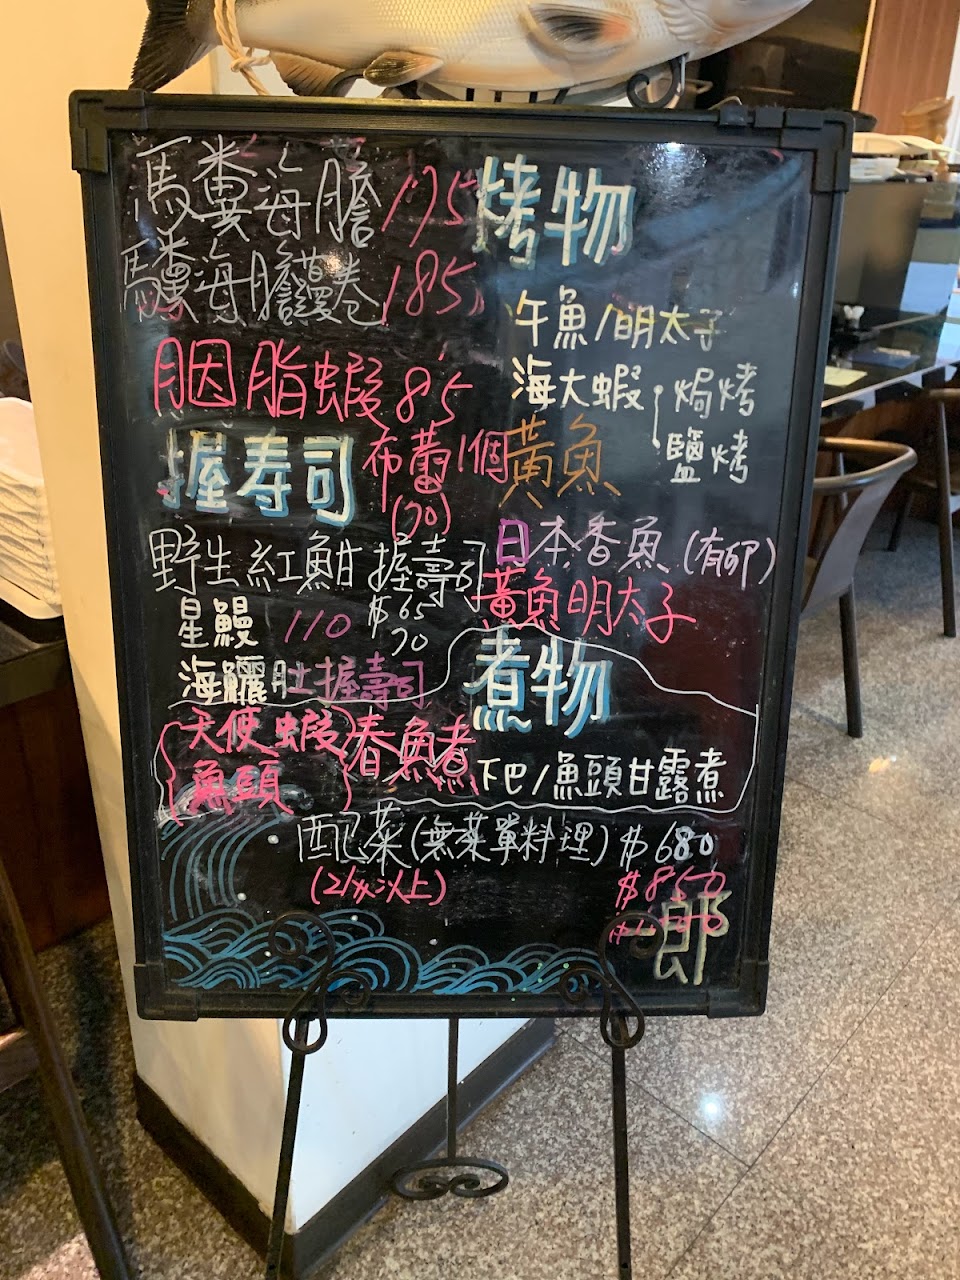 馬糞海膽 175
馬糞海膽饅卷 185
胭脂蝦 85
握寿司
布蕾1個
(70)
野生紅魽 握壽司
$65
70
星鰻 110
海鱺肚握壽司
天使蝦
魚頭
春魚煮
烤物
午魚/明太子
海大蝦 焗烤
鹽烤
黃魚
日本香魚(有卵)
黃魚明太子
煮物
下巴/魚頭甘露煮
配菜(無菜單料理) $680
(2人以上) $850
一郎